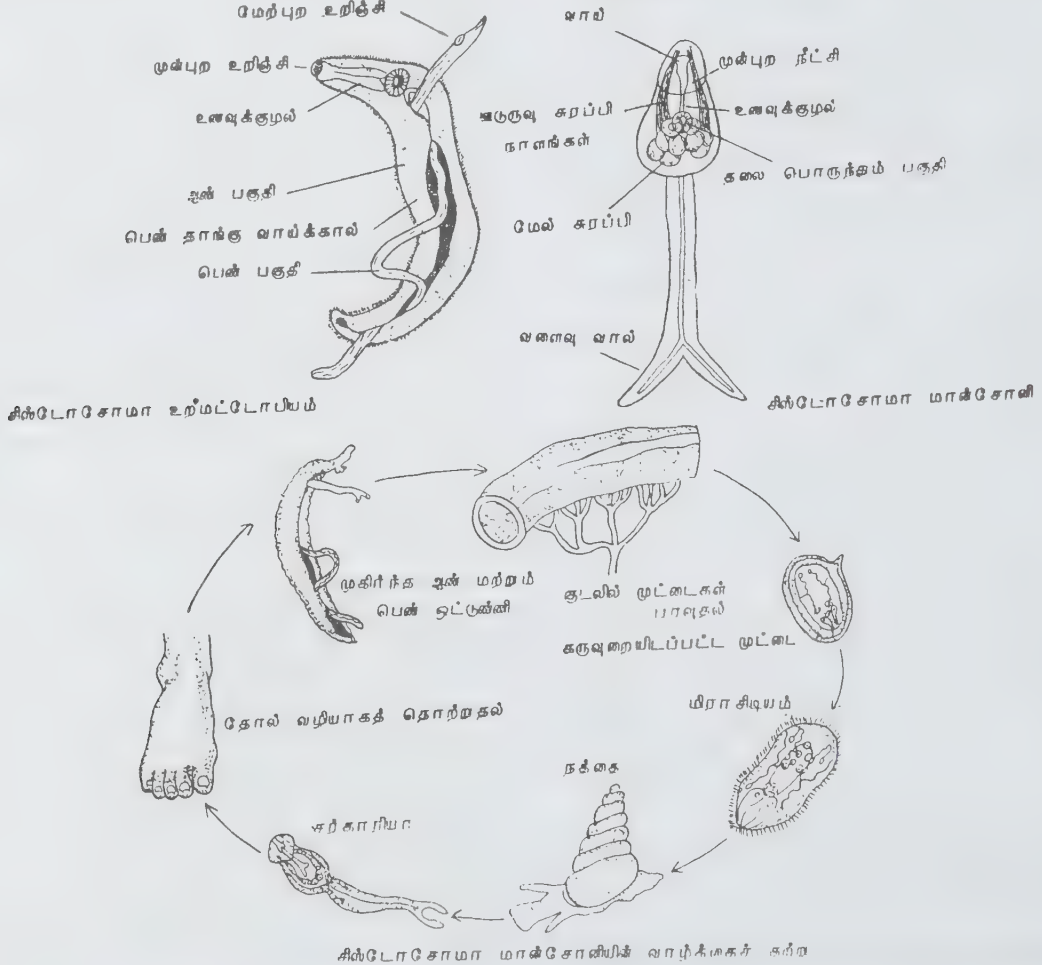 மேற்புற உறிஞ்சி
முன்புற உறிஞ்சி
உணவுக்குழல்
ஆண் பகுதி
பெண் தாங்கு வாய்க்கால்
பெண் பகுதி
சிஸ்டோசோமா உறீமட்டோபியம்
வாய்
முன்புற நீட்சி
ஊடுருவு சுரப்பி
நாளங்கள்
உணவுக்குழல்
தலை பொருந்தும் பகுதி
மேல் சுரப்பி
வளைவு வால்
சிஸ்டோசோமா மான்சோனி
முதிர்ந்த ஆண் மற்றும்
பெண் ஒட்டுண்ணி
குடலில் முட்டைகள்
பரவுதல்
கருவுறையிடப்பட்ட முட்டை
மிராசிடியம்
நத்தை
சர்காரியா
தோல் வழியாகத் தொற்றுதல்
சிஸ்டோசோமா மான்சோனியின் வாழ்க்கைச் சுற்று